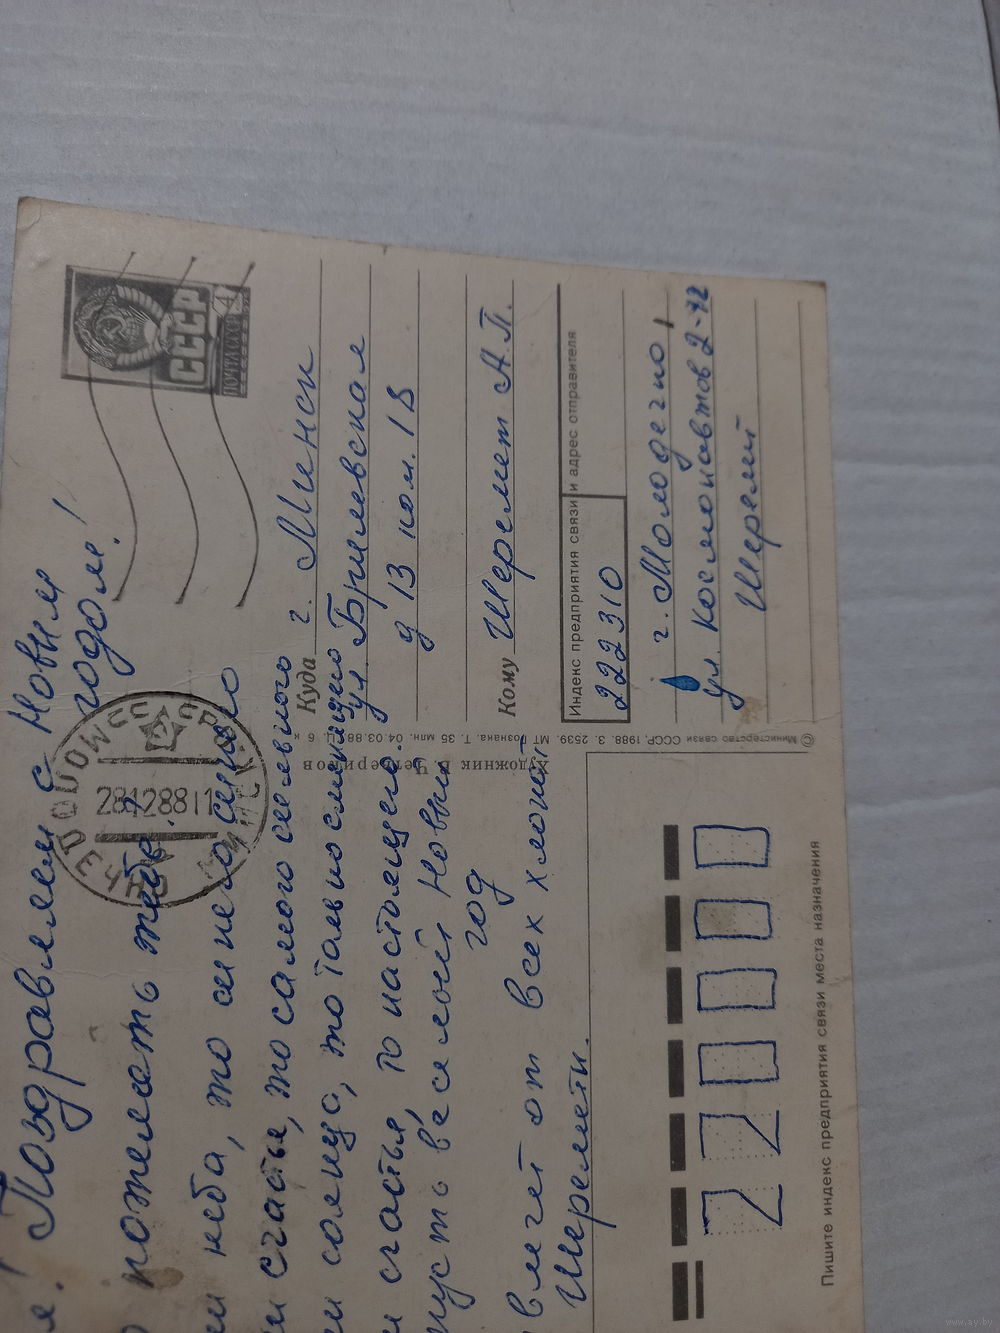 я! Поздравляем с Новым
годом!
пожелать тебе?
неба, то синего синего
и счастья, то самого самого
и солнца, то
и счастья, то настоящего
пусть веселый Новый
год
вляет от всех хлопот
Шереметы.
ПОЧТА СССР
СССР
4
МОЛОДЕЧНО
МИНСКОЙ
28 12 88 11
Куда г. Минск
ул. Брилевская
д 13 ком. 18
Кому Шеремет А.П.
Индекс предприятия связи и адрес отправителя
222310
г. Молодечно,
ул. Космонавтов 2-72
Шеремет
Художник В. Четвериков
© Министерство связи СССР, 1988. З. 2539. МТ Гознака. Т. 35 млн. 04.03.88. Ц. 6 к
220000
Пишите индекс предприятия связи места назначения
www.ay.by